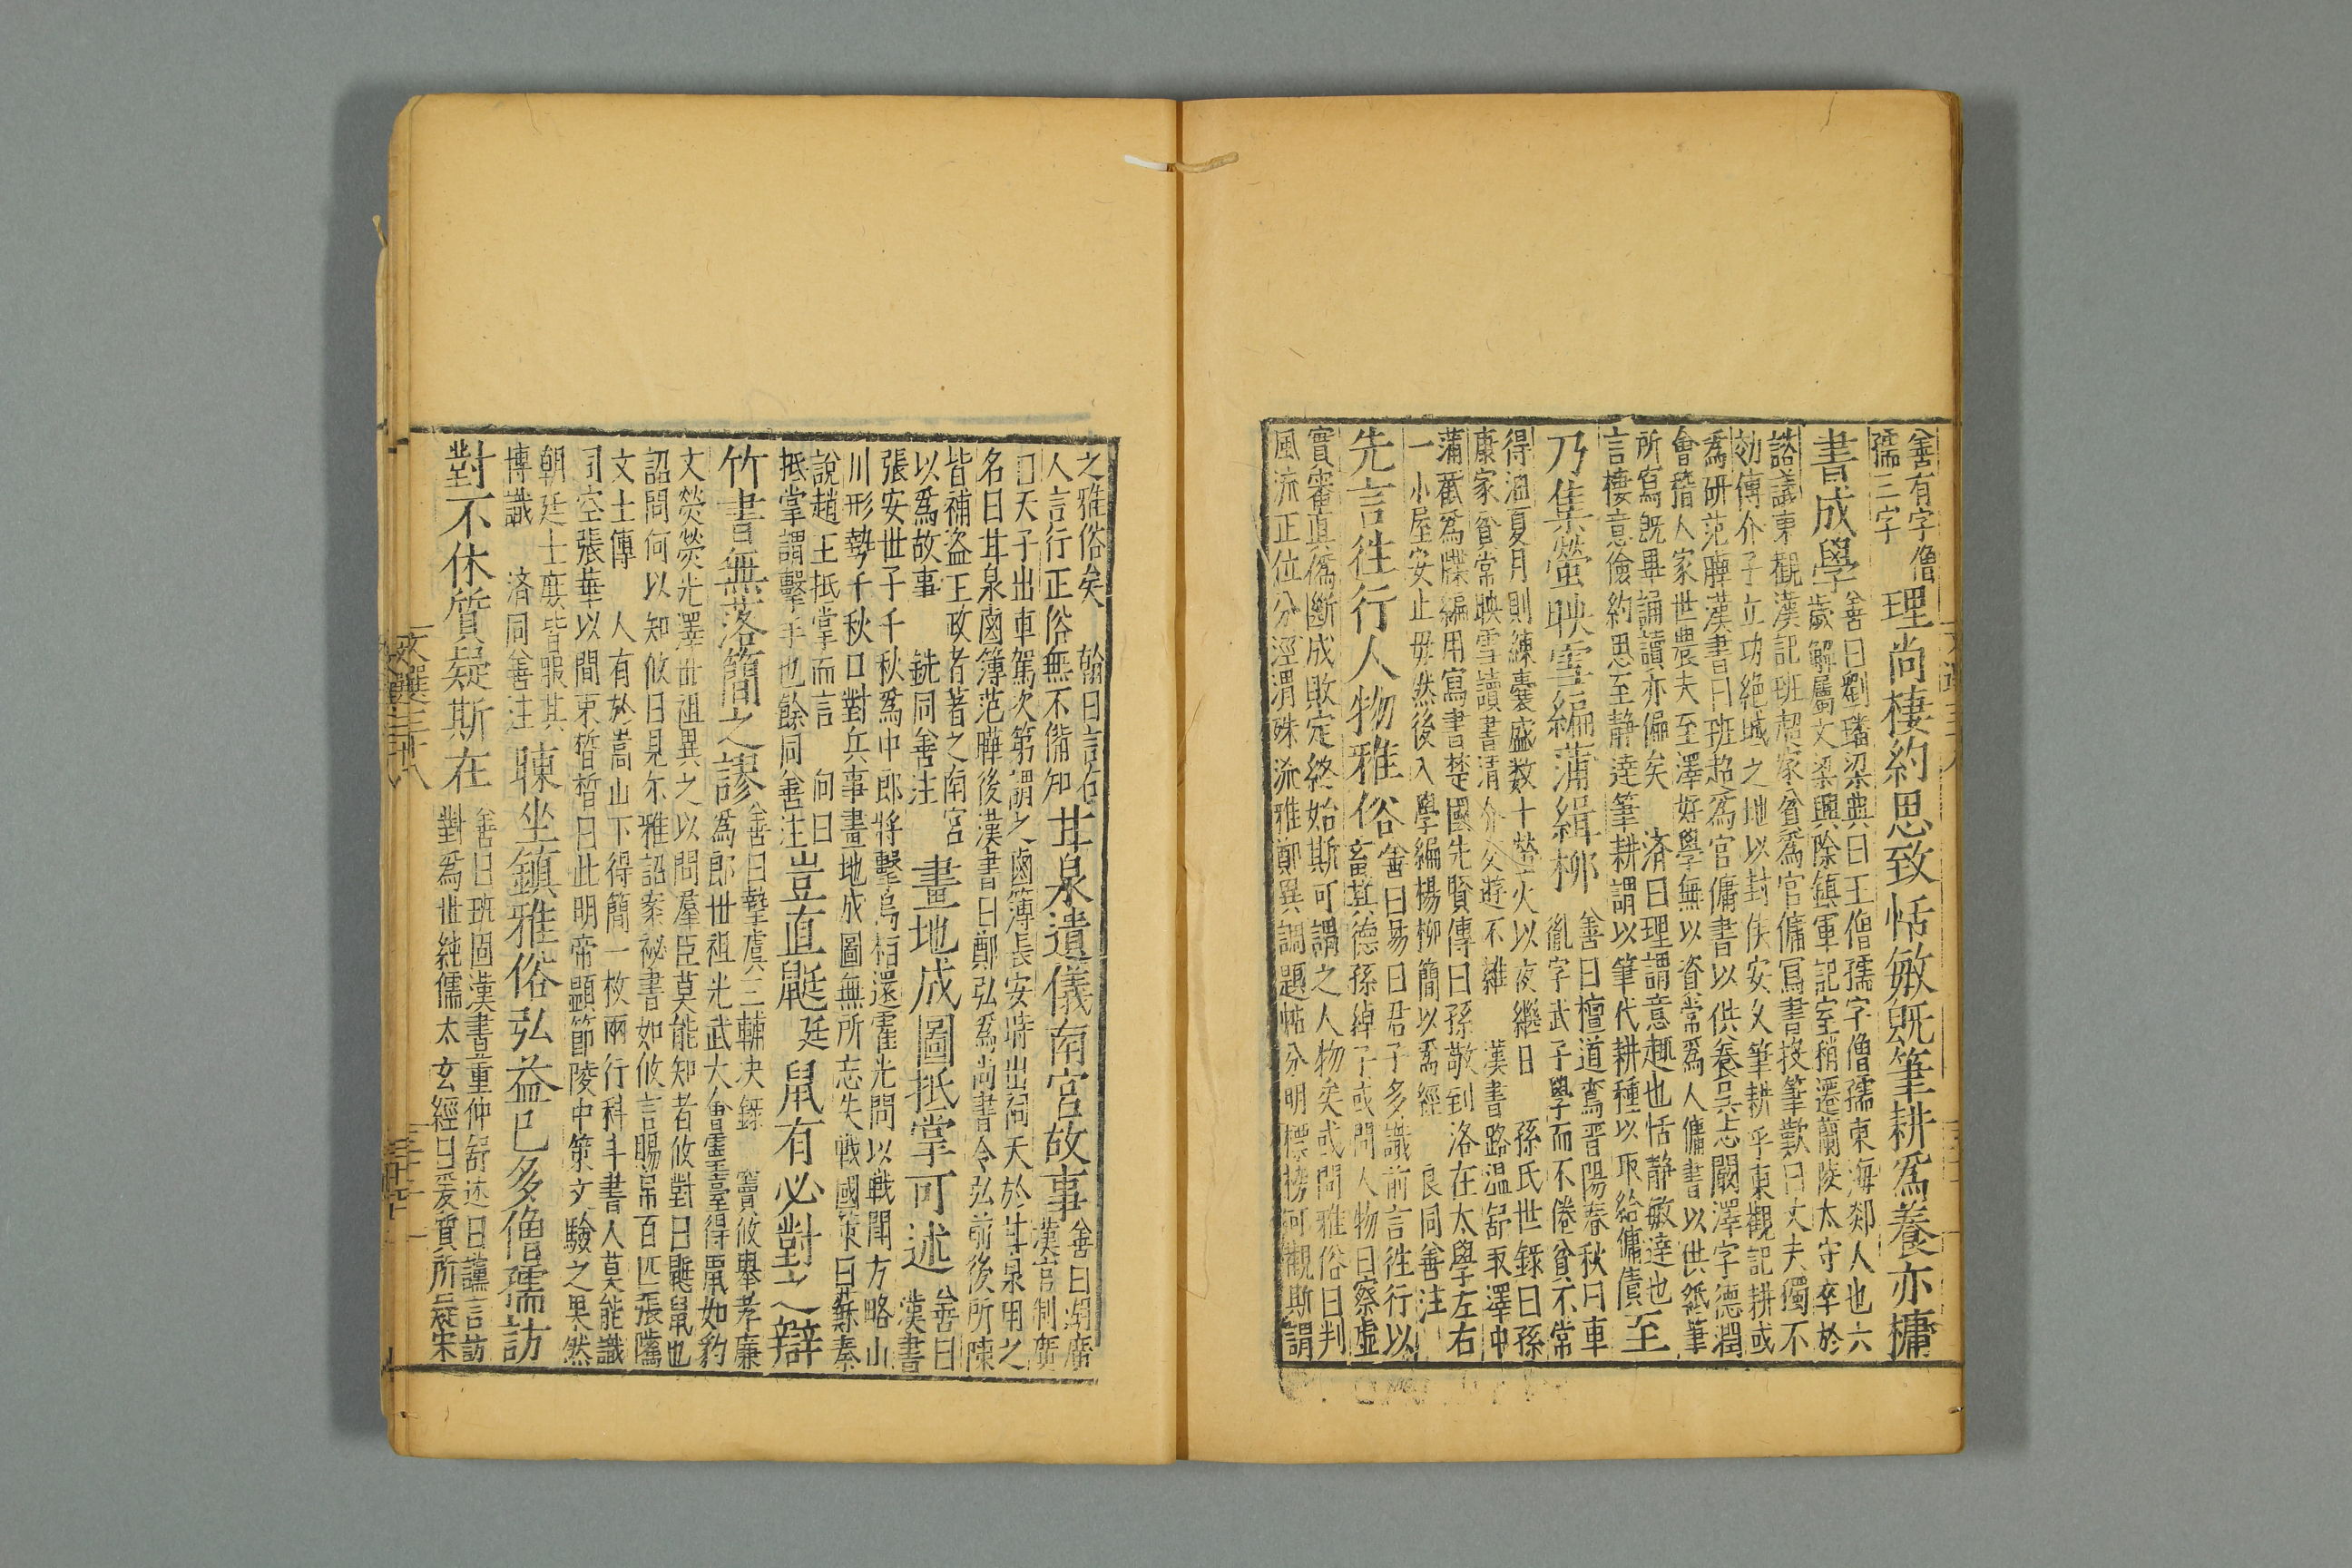 善有字僧
孺三字
理尚棲約思致恬敏既筆耕為養亦傭
書成學
善曰劉璠梁典曰王僧孺字僧孺東海郯人也六
歲解屬文梁興除鎮軍記室稍遷蘭陵太守卒於
諮議東觀漢記班超家貧為官傭寫書投筆歎曰丈夫獨不
効傅介子立功絕域之地以封侯安久筆耕乎東觀記耕或
為研范曄漢書曰班超為官傭書以供養吳志闞澤字德潤
會稽人家世農夫至澤好學無以資常為人傭書以供紙筆
所寫既畢誦讀亦徧矣 濟曰理謂意趣也恬靜敏達也
言棲意儉約思至靜達筆耕謂以筆代耕種以取給傭債
至
乃集螢映雪編蒲緝柳
善曰檀道鸞晉陽春秋曰車
胤字武子學而不倦貧不常
得油夏月則練囊盛数十螢火以夜繼日 孫氏世錄曰孫
康家貧常映雪讀書清介交遊不雜 漢書路温舒取澤中
蒲截為牒編用寫書楚國先賢傳曰孫敬到洛在太學左右
一小屋安止毋然後入學編楊柳簡以為經 良同善注
先言往行人物雅俗
善曰易曰君子多識前言往行以
畜其德孫綽子或問人物曰察虛
實審真偽斷成敗定終始斯可謂之人物矣或問雅俗曰判
風流正位分涇渭殊流雅鄭異調題帖分明標榜可觀斯謂
之雅俗矣 翰曰言右
人言行正俗無不備知
甘泉遺儀南宮故事
善曰胡廣
漢官制廣
曰天子出車駕次第謂之鹵簿長安時出祠天於甘泉用之
名曰甘泉鹵簿范曄後漢書曰鄭弘為尚書令弘前後所陳
皆補益王政者著之南宮
以為故事 銑同善注
畫地成圖抵掌可述
善曰
漢書
張安世子千秋為中郎將擊烏桓還霍光問以戰鬬方略山
川形勢千秋口對兵事畫地成圖無所忘失戰國策曰蘇秦
說趙王抵掌而言 向曰
抵掌謂擊手也餘同善注
豈直鼮廷鼠有必對之辯
竹書無落簡之謬
善曰摯虞三輔决錄 竇攸舉孝廉
為郎世祖光武大會靈臺得鼠如豹
文熒熒光澤世祖異之以問羣臣莫能知者攸對曰鼮鼠也
詔問何以知攸曰見尓雅詔案祕書如攸言賜帛百匹張隲
文士傳 人有於嵩山下得簡一枚兩行科斗書人莫能識
司空張華以問束皙皙曰此明帝顯節陵中策文驗之果然
朝廷士庶皆服其
博識 濟同善注
暕坐鎮雅俗弘益已多僧孺訪
對不休質疑斯在
善曰班固漢書董仲舒述曰讜言訪
對為世純儒太玄經曰爰質所疑宋
文選三十八